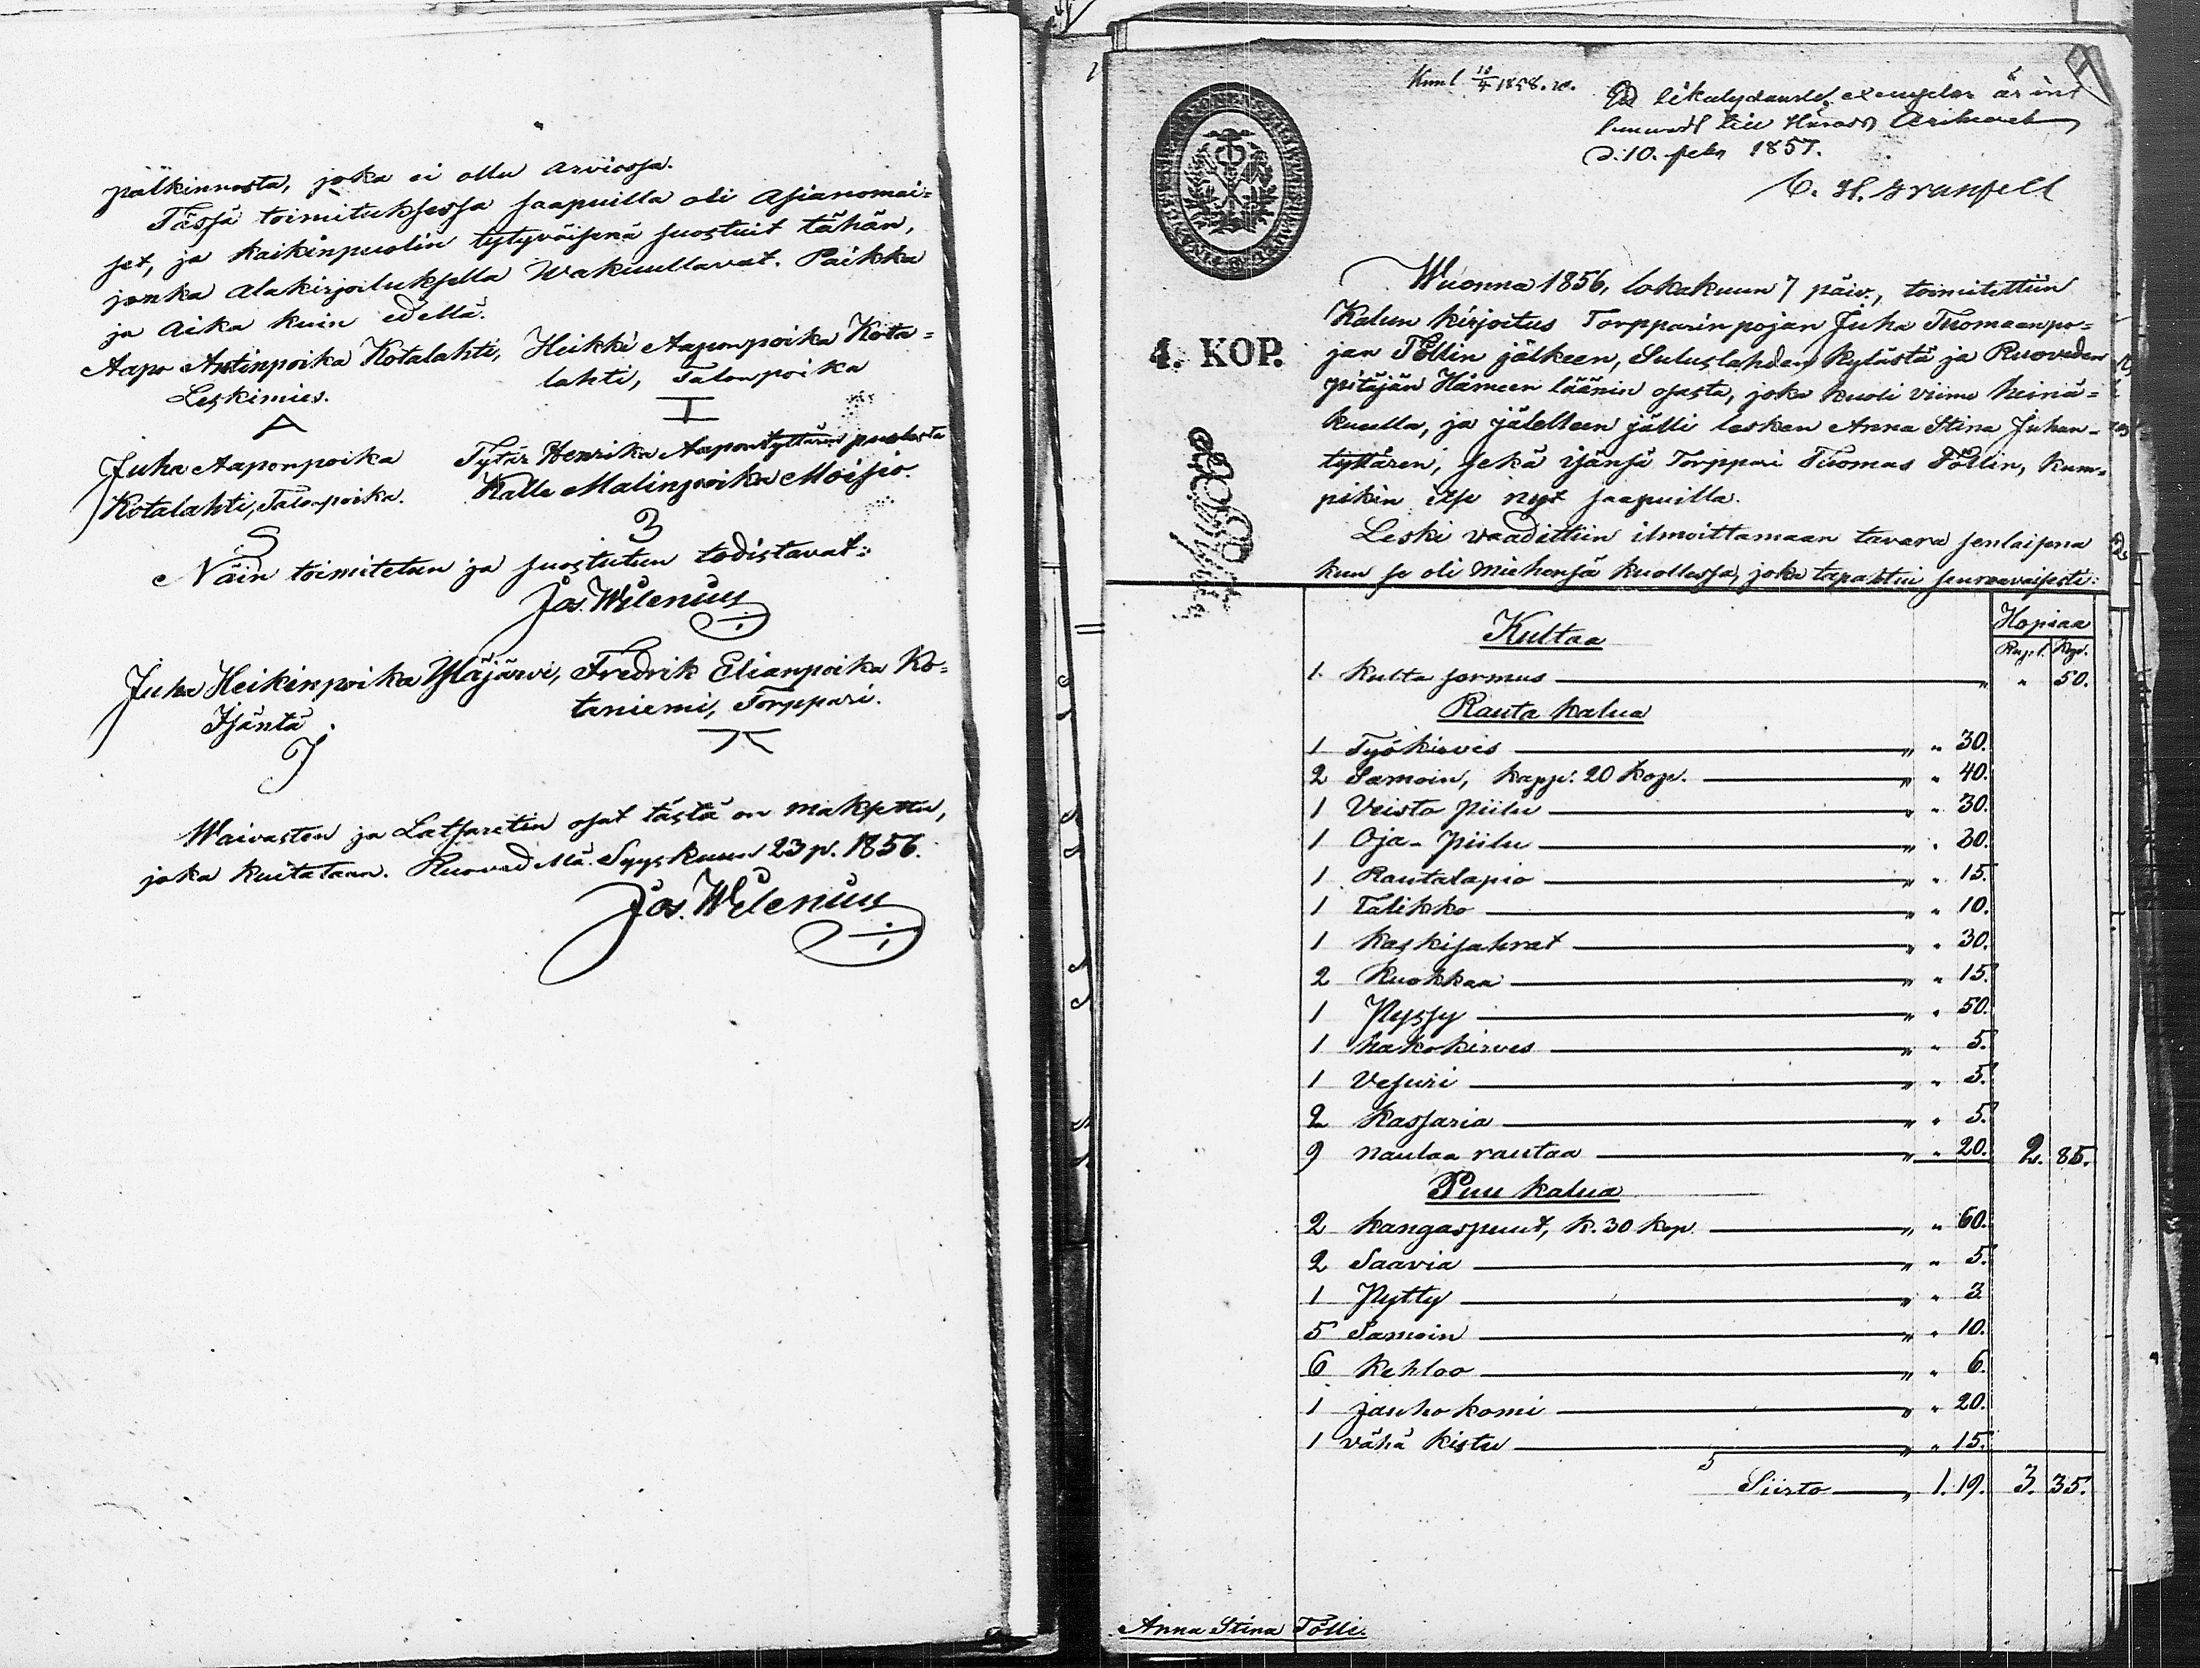 pälkinnosta, joka ei ollu arviossa.
Tässä toimituksessa saapuilla oli Asianomai=
set, ja kaikinpuolin tytyväisenä suostuit tähän,
jonka alakirjoituksella wakuullavat. Paikka
ja aika kuin edellä.
Aapo Antinpoika Kotalahti,
Leskimies.
A
Heikki Aaponpoika Kota=
lahti, Talonpoika
I
Juha Aaponpoika
Kotalahti, Talonpoika.
S
Tytär Henrika Aapontyttären puolesta
Kalle Malinpoika Moisio.
3
Näin toimitetun ja suostutun todistavat:
Jos. Wilenius
Juha Heikinpoika Yläjärvi,
Isäntä.
J
Fredrik Elianpoika Ko=
taniemi, Torppari.
Waivasten ja Latsaretin osat tästä on maksettu,
joka kuitataan. Ruovedellä Syyskuun 23 p. 1856.
Jos. Wilenius
Kunl 10/4 1858.
Ett likalydande exemplar är in
lemnadt till Härads Arkivet
d. 10. febr 1857.
C. H. Granfelt
4. KOP.
Wuonna 1856, lokakuun 7 päiv., toimitettiin
Kalun kirjoitus Torpparin pojan Juha Tuomaanpo=
jan Töllin jälkeen, Suluslahden kylästä ja Ruoveden
pitäjän Hämeen läänin osasta, joka kuoli viime heinä=
kuulla, ja jälelleen jätti lesken Anna Stina Juhan=
tyttären, sekä isänsä Torppari Tuomas Töllin, kum=
pikin itse nyt saapuilla.
Leski vaadittiin ilmoittamaan tavara senlaisena
kun se oli miehensä kuollessa, joka tapahtui seuraavaisesti:
Hopiaa
Rupl. Kop.
Kultaa
1. Kulta sormus „ „ 50.
Rauta kalua
1 Työkirves „ „ 30.
2 Samoin, kapp. 20 kop. „ „ 40.
1 Veisto piilu „ „ 30.
1 Oja-piilu „ „ 30.
1 Rautalapio „ „ 15.
1 Talikko „ „ 10.
1 Kaskisahrat „ „ 30.
2 Kuokkaa „ „ 15.
1 Pyssy „ „ 50.
1 hakokirves „ „ 5.
1 Vesuri „ „ 5.
2 Kassaria „ „ 5.
9 naulaa rautaa „ „ 20. 2. 85.
Puu kalua
2 kangaspuut, k. 30 kop. „ „ 60.
2 Saavia „ „ 5.
1 Pytty „ „ 3
5 Samoin „ „ 10.
6 Kehloo „ „ 6.
1 jauho komi „ „ 20.
1 vähä kistu „ „ 15.
Siirto „ 1. 19. 3. 35.
Anna Stina Tölli.